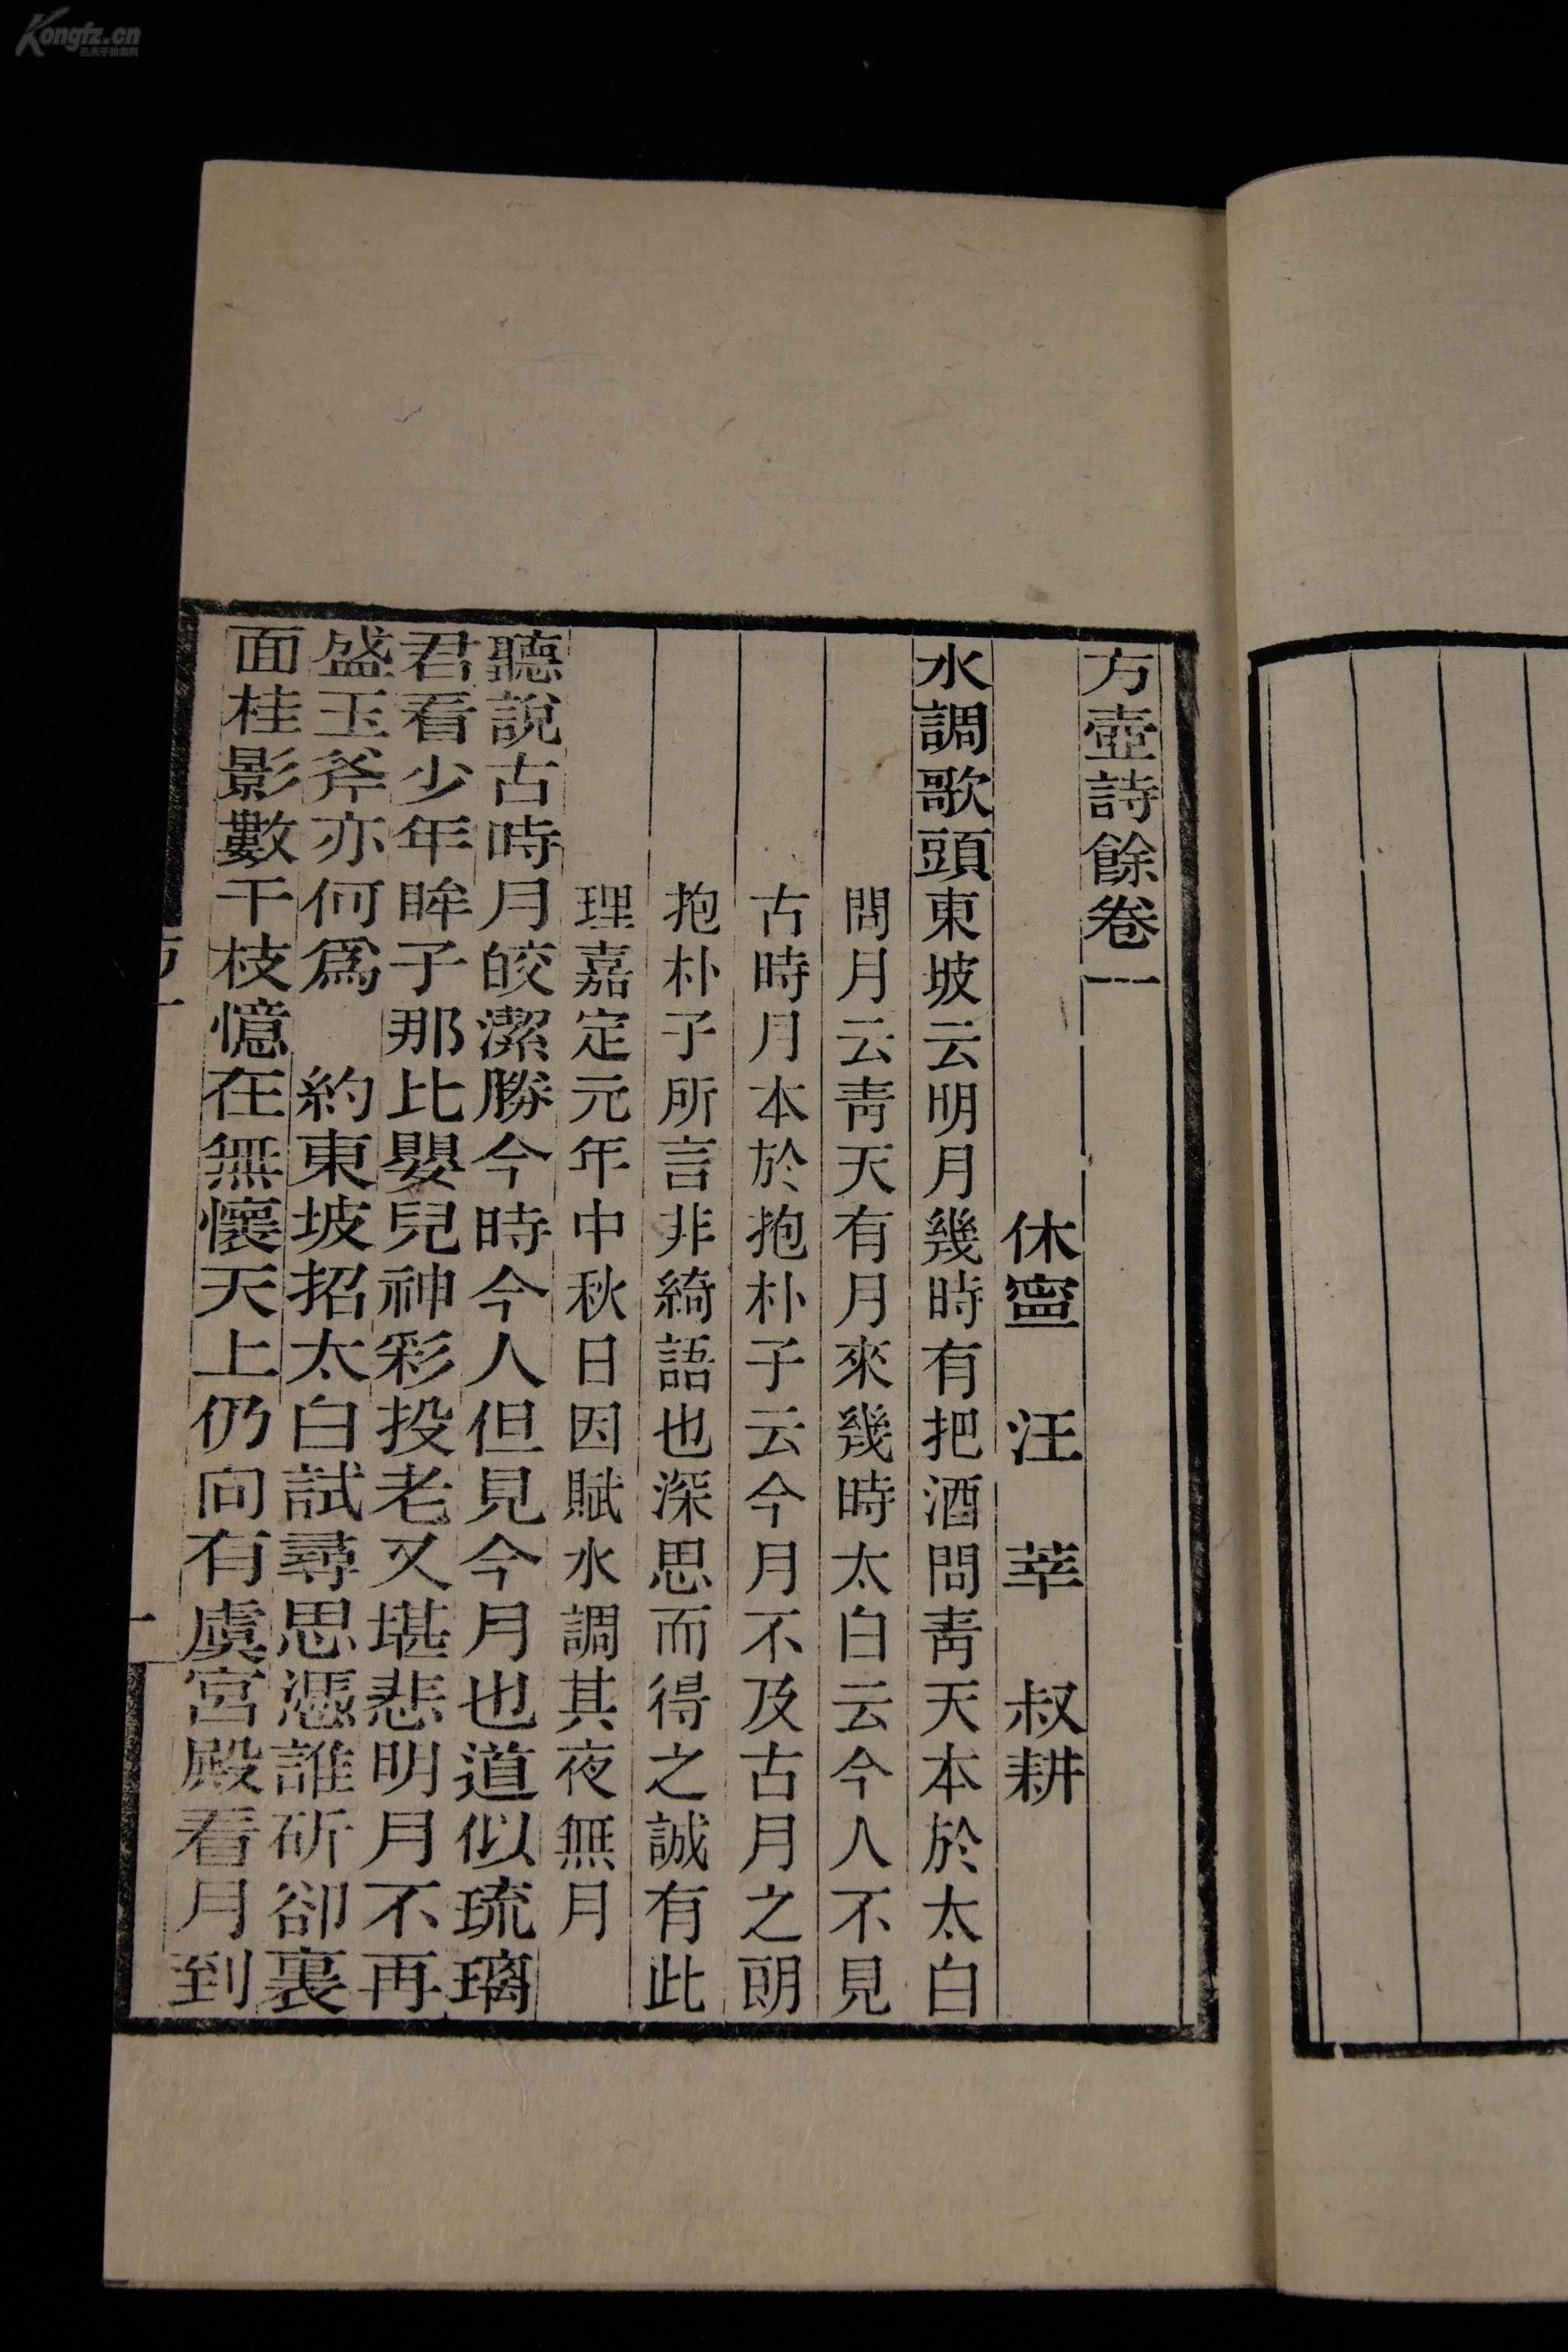 方壺詩餘卷一
休寧 汪 莘 叔耕
水調歌頭東坡云明月幾時有把酒問靑天本於太白
問月云靑天有月來幾時太白云今人不見
古時月本於抱朴子云今月不及古月之朗
抱朴子所言非綺語也深思而得之誠有此
理嘉定元年中秋日因賦水調其夜無月
聽說古時月皎潔勝今時今人但見今月也道似琉璃
君看少年眸子那比嬰兒神彩投老又堪悲明月不再
盛玉斧亦何爲 約東坡招太白試尋思憑誰斫卻裏
面桂影數千枝憶在無懷天上仍向有虞宮殿看月到
一
Kongfz.cn
孔夫子拍卖网